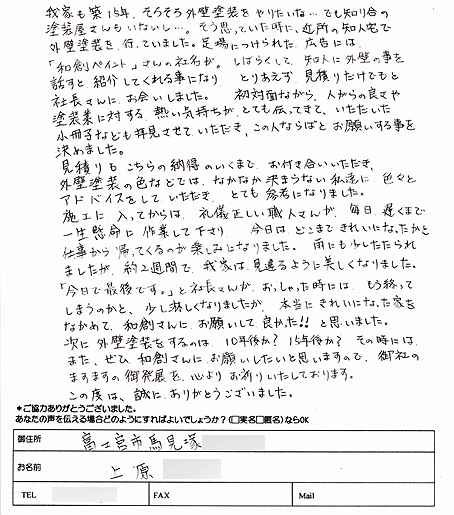 我家も築15年、そろそろ外壁塗装をやりたいな…でも知り合の
塗装屋さんもいないし…。そう思っていた時に、近所の知人宅で
外壁塗装を行っていました。足場につけられた広告には、
「和創ペイント」さんの社名が。しばらくして、知人に外壁の事を
話すと紹介してくれる事になり、とりあえず見積りだけでもと
社長さんにお会いしました。初対面ながら、人がらの良さや
塗装業に対する熱い気持ちがとても伝ってきて、いただいた
小冊子なども拝見させていただき、この人ならばとお願いする事を
決めました。
見積りもこちらの納得のいくまで、お付き合いいただき、
外壁塗装の色などでは、なかなか決まらない私達に色々と
アドバイスをしていただき、とても参考になりました。
施工に入ってからは、礼儀正しい職人さんが、毎日遅くまで
一生懸命に作業して下さり、今日はどこまできれいになったかと
仕事から帰ってくるのが楽しみになりました。雨にも少したたられ
ましたが、約2週間で、我家は見違るように美しくなりました。
「今日で最後です。」と社長さんが、おっしゃった時には、もう終って
しまうのかと、少し淋しくなりましたが、本当にきれいになった家を
ながめて、和創さんにお願いして良かった!!と思いました。
次に外壁塗装をするのは、10年後か?15年後か?その時には、
また、ぜひ和創さんにお願いしたいと思いますので、御社の
ますますの御発展を、心よりお祈りいたしております。
この度は、誠にありがとうございました。
*ご協力ありがとうございました。
あなたの声を伝える場合どのようにすればよいでしょうか?(□実名□匿名)ならOK
御住所 富士宮市馬見塚
お名前 上原
TEL FAX Mail